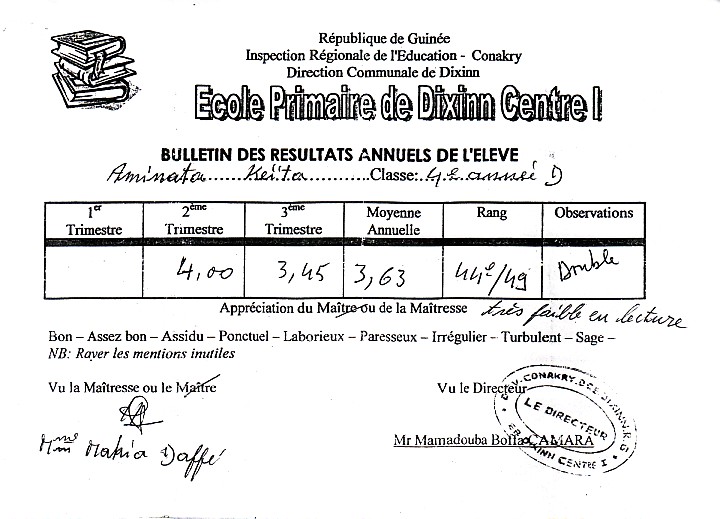 République de Guinée
Inspection Régionale de l'Education - Conakry
Direction Communale de Dixinn
Ecole Primaire de Dixinn Centre I
BULLETIN DES RESULTATS ANNUELS DE L'ELEVE
Aminata......Keïta............Classe:..4e année D
1er Trimestre 2ème Trimestre 3ème Trimestre Moyenne Annuelle Rang Observations
4,00 3,45 3,63 44e/49 Double
Appréciation du Maître ou de la Maîtresse très faible en lecture
Bon – Assez bon – Assidu – Ponctuel – Laborieux – Paresseux – Irrégulier – Turbulent – Sage –
NB: Rayer les mentions inutiles
Vu la Maîtresse ou le Maître Vu le Directeur
Mme Mahia Daffé
Mr Mamadouba Boffa CAMARA
CONAKRY.DCE DIXINN.R.G
LE DIRECTEUR
DIXINN CENTRE I